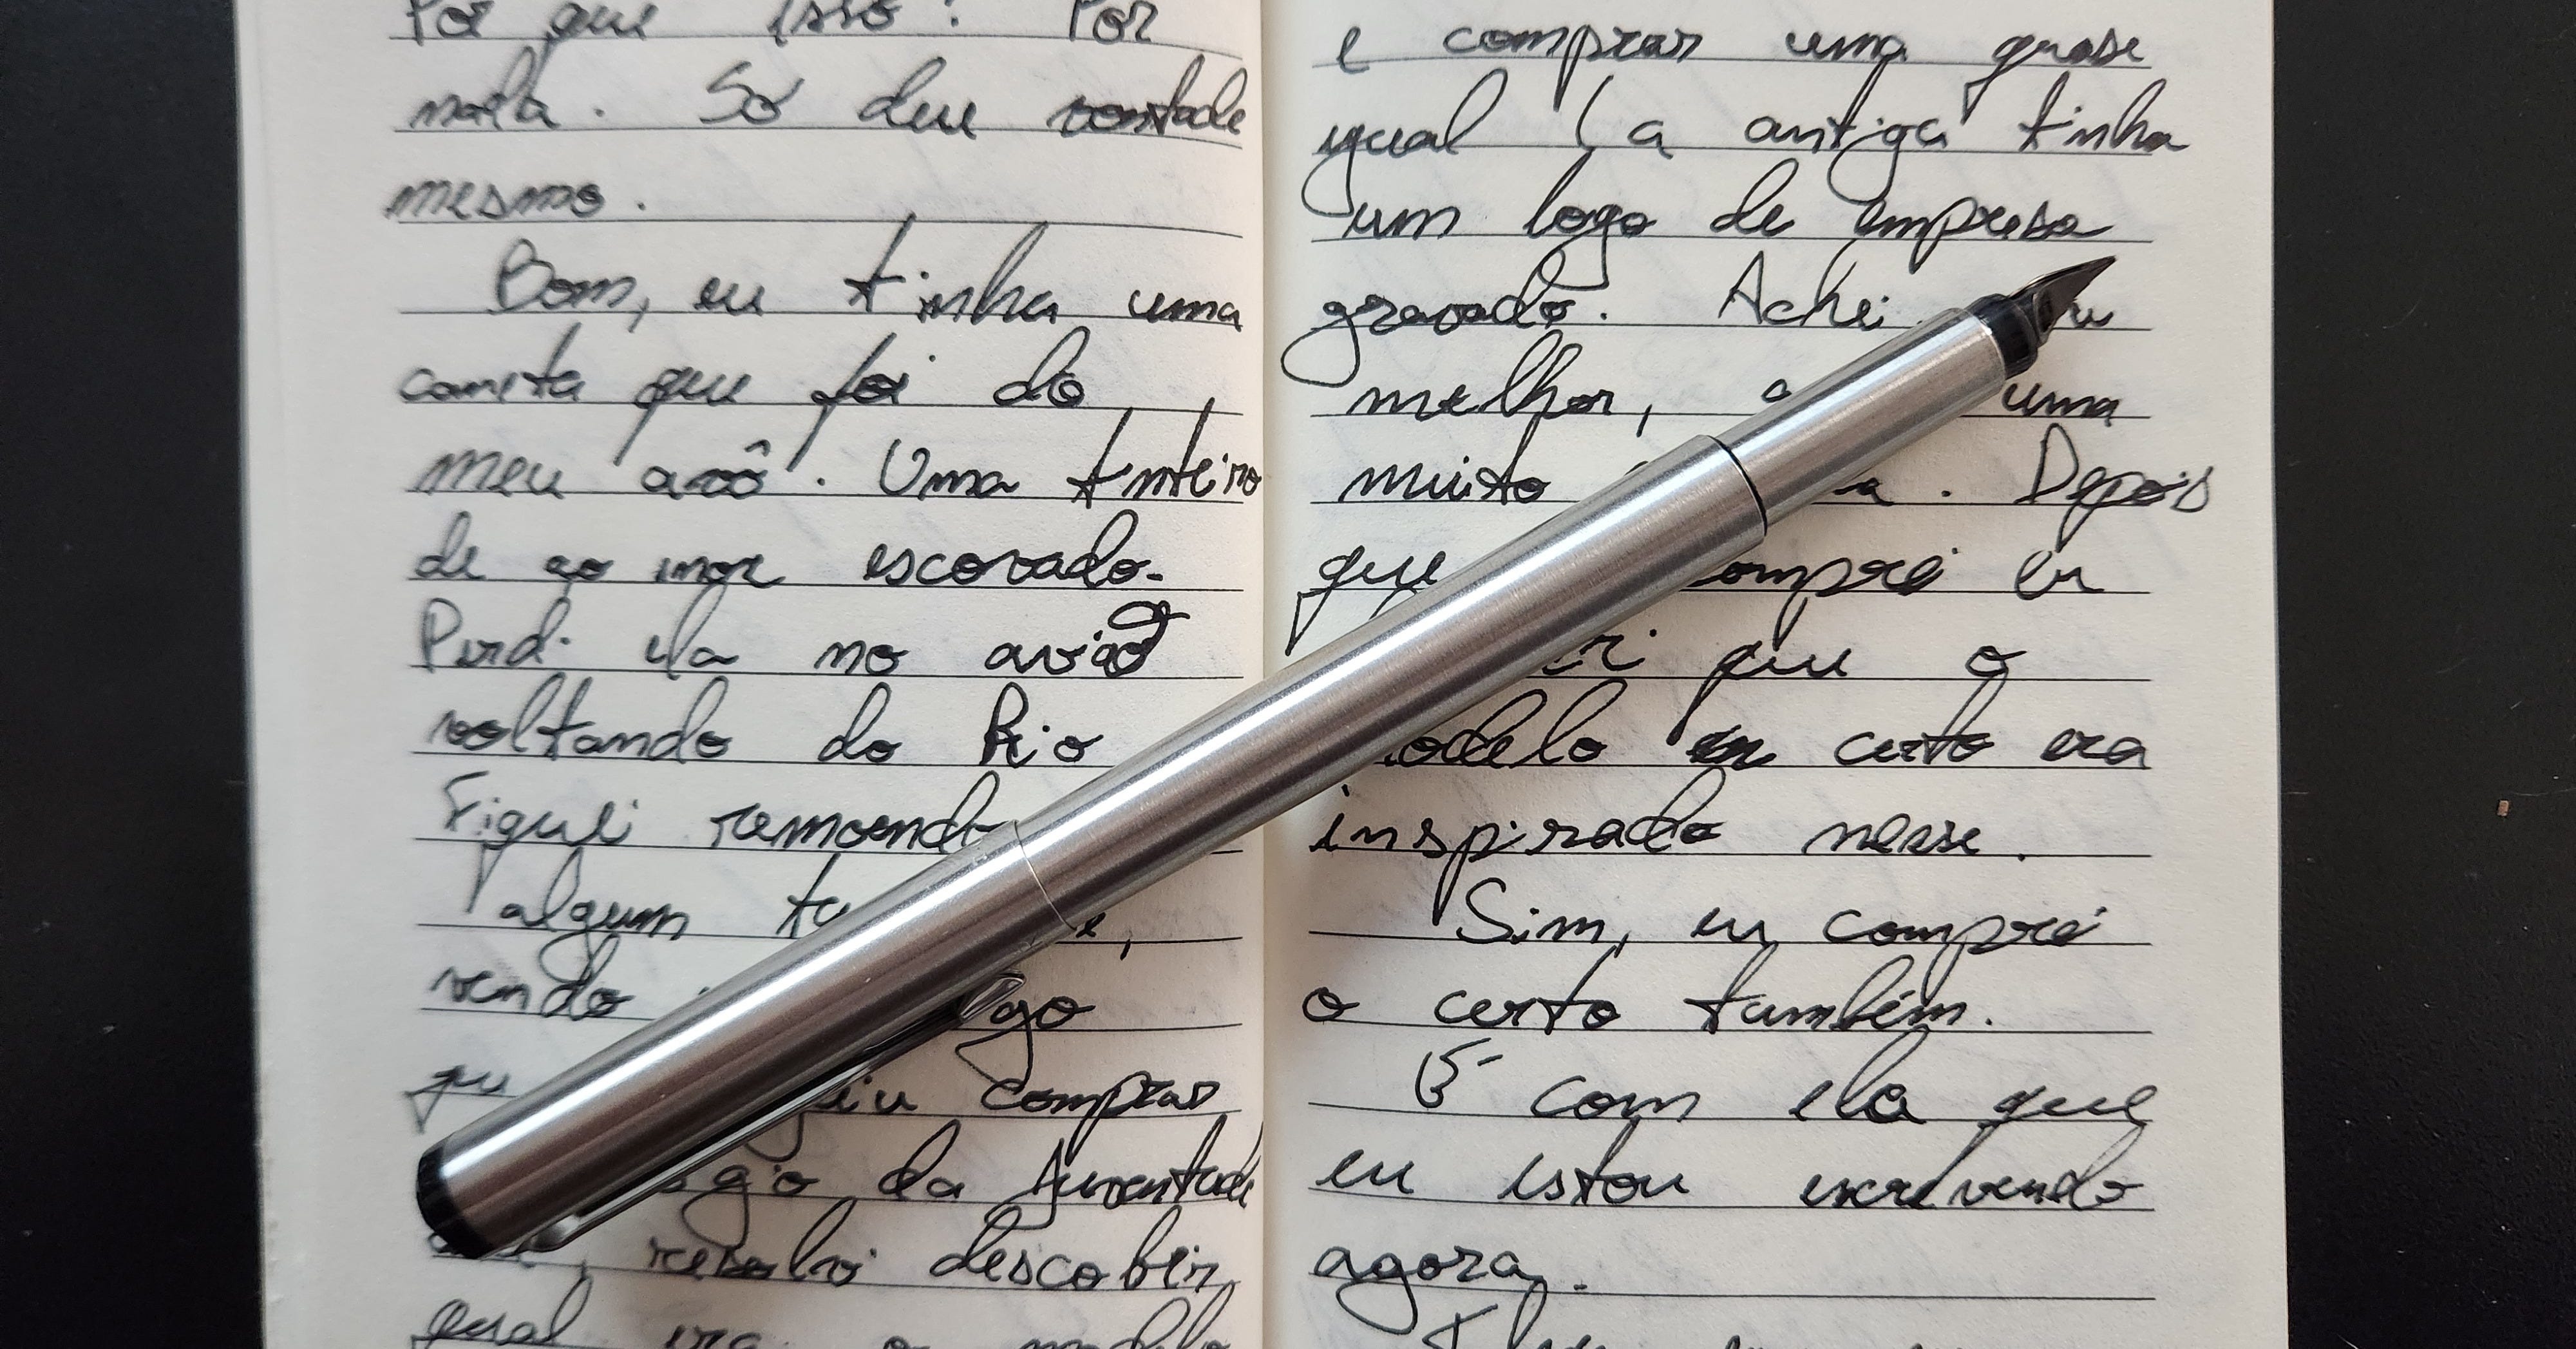 Por que isso? Por
nada. Só deu vontade
mesmo.
Bom, eu tinha uma
caneta que foi do
meu avô. Uma tinteiro
de aço inox escovado.
Perdi ela no avião
voltando do Rio
Fiquei remoendo
algum
vendo
comprar
da Juventude
resolvi descobrir
qual era o modelo
e comprar uma quase
igual (a antiga tinha
um logo de empresa
gravado. Achei
melhor, uma
muito . Depois
que comprei eu
que o
modelo certo era
inspirado nesse.
Sim, eu comprei
o certo também.
É com ela que
eu estou escrevendo
agora.